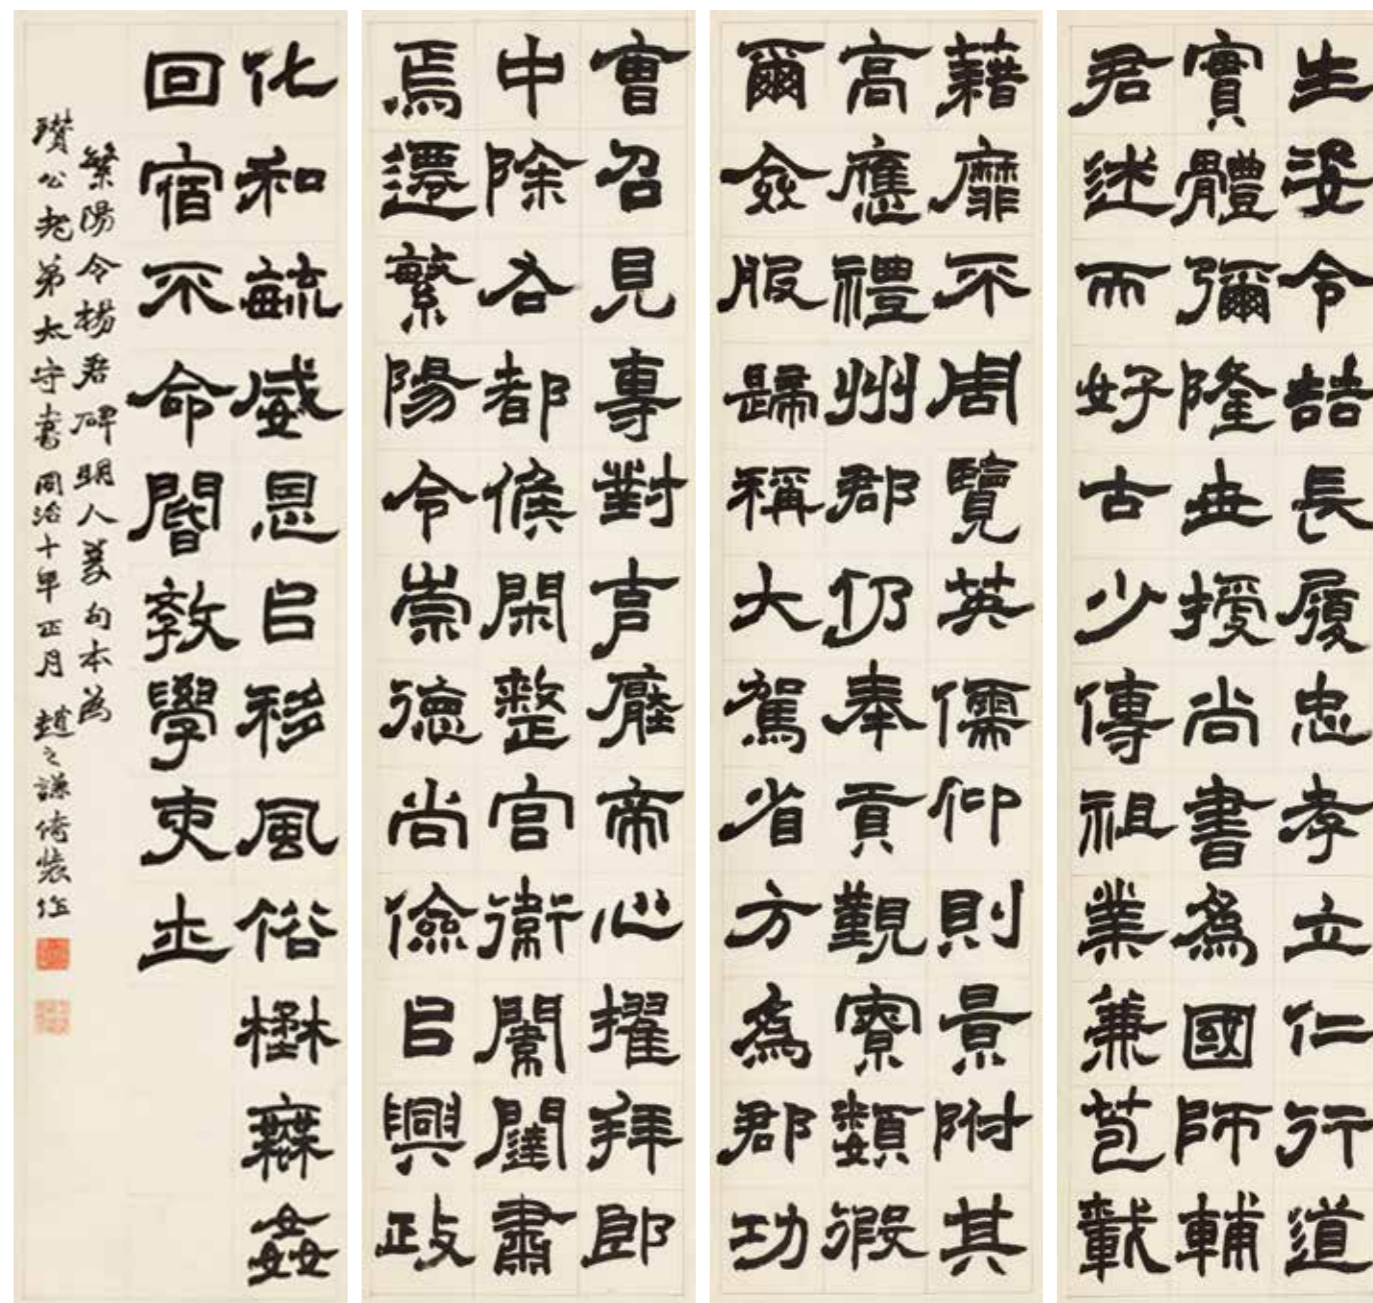 生姿令喆長履忠孝立仁行道
實體彌隆世授尚書為國師輔
君述而好古少傳祖業兼苞載
藉靡不周覽英儒仰則景附其
高應禮州郡仍奉貢覲寮類徦
爾僉服歸稱大駕省方為郡功
曹召見專對言應帝心擢拜郎
中除右都候閑整宮衛闌闥肅
焉遷繁陽令崇德尚儉㠯興政
化和毓威恩㠯移風俗無姦
回宿不命閽敩學吏士
繁陽令楊君碑明人句本為
瓚公老弟太守書同治十年正月趙之謙倚裝作